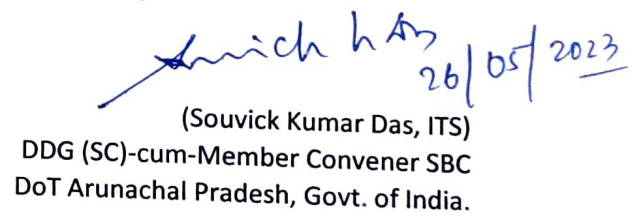 26/05/2023
(Souvick Kumar Das, ITS)
DDG (SC)-cum-Member Convener SBC
DoT Arunachal Pradesh, Govt. of India.